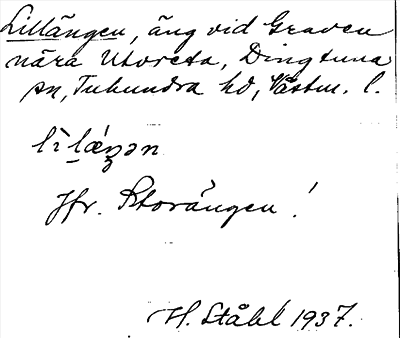 Lillängen, äng vid Graven
nära Utvreta, Dingtuna
sn, Tuhundra hd, Västm. l.
lìlǽŋən
Jfr. Storängen!
H. Ståhl 1937.